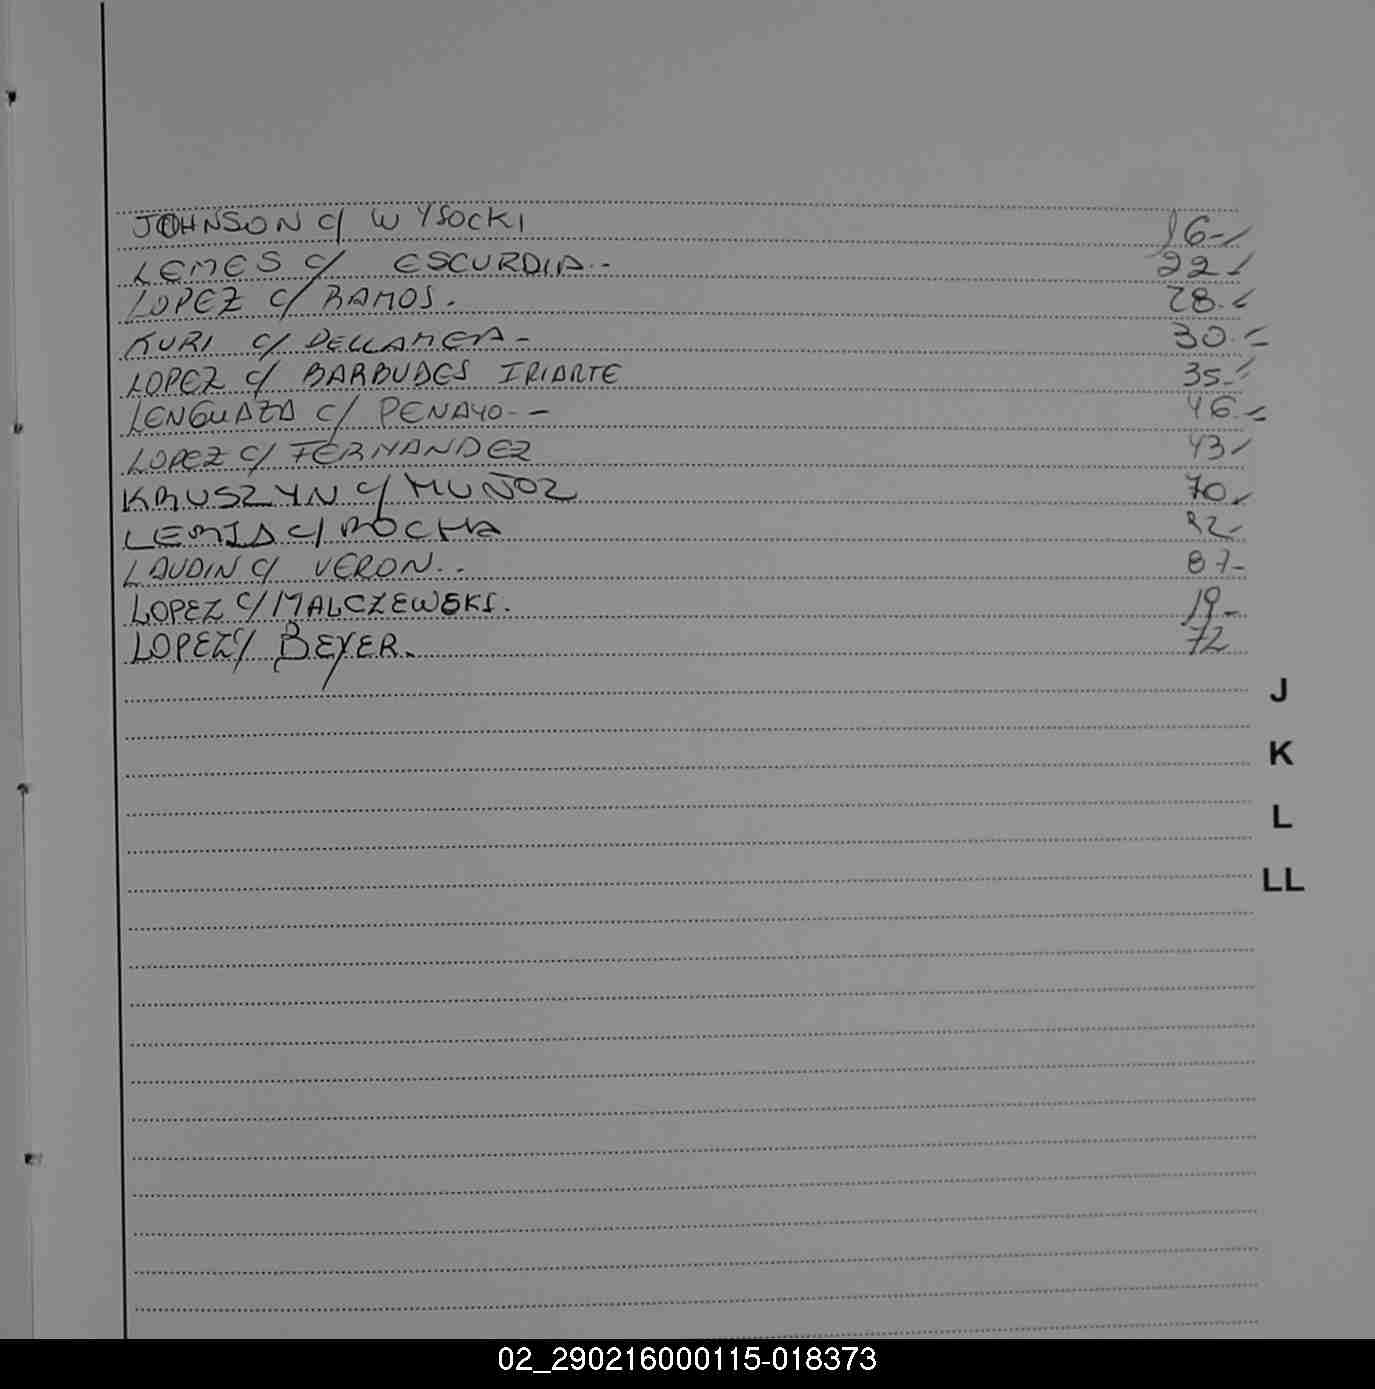 JOHNSON c/ WYSOCKI 16-
LEMES c/ ESCURDIA.- 22
LOPEZ c/ RAMOS. 28.
KURI c/ DELLAMEA- 30.-
LOPEZ c/ BARBUDES IRIARTE 35.-
LENGUAZA c/ PENAYO-- 46.-
LOPEZ c/ FERNANDEZ 43
KRUSZYN c/ MUÑOZ 70
c/ ROCHA
LAUDIN c/ VERON.. 87-
LOPEZ c/ MALCZEWSKI. 19-
LOPEZ c/ BEYER. 72
J
K
L
LL
02_290216000115-018373